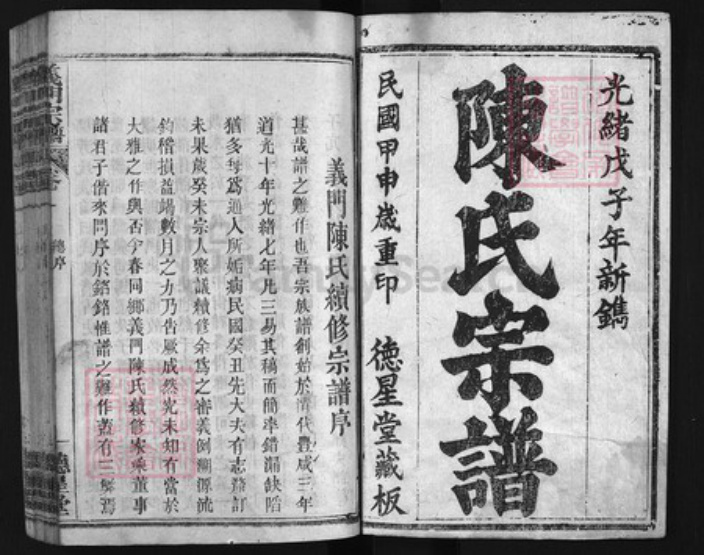 光緒戊子年新鐫
陳氏宗譜
民國甲申歲重印 德星堂藏板
義門陳氏續修宗譜序
甚哉譜之難作也吾宗族譜創始於清代豐咸三年
道光十年光緒七年凡三易其稿而簡率錯漏缺陷
猶多每為通人所姤病民國癸丑先大夫有志釐訂
未果歲癸未宗人聚議續修余為之審義例溯源流
鈎稽損益端數月之力乃告厥成然尤未知有當於
大雅之作與否今春同鄉義門陳氏續修家乘董事
諸君子偕來問序於銘銘惟譜之難作蓋有三弊焉
總序
德星堂